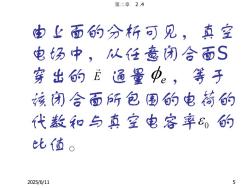 第二章 2.4
由上面的分析可见，真空
电场中，从任意闭合面S
穿出的 E 通量Φe，等于
该闭合面所包围的电荷的
代数和与真空电容率ε0 的
比值。
2025/6/11
5